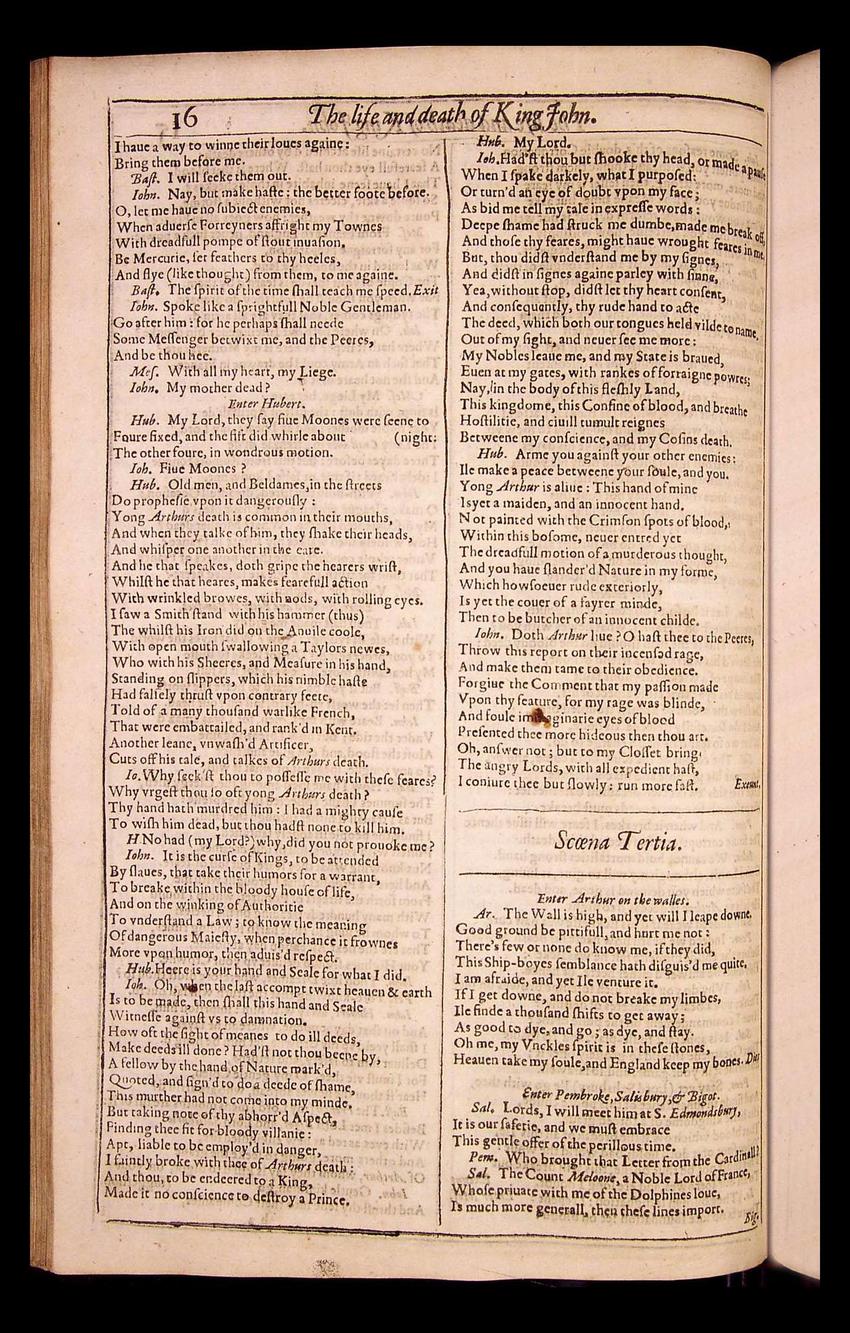 16
The life and death of King John.
I haue a way to winne their loues againe:
Bring them before me.
Baſt. I will ſeeke them out.
Iohn. Nay, but make haſte: the better foote before.
O, let me haue no ſubiect enemies,
When aduerſe Forreyners affright my Townes
With dreadfull pompe of ſtout inuaſion.
Be Mercurie, ſet feathers to thy heeles,
And flye (like thought) from them, to me againe.
Baſt. The ſpirit of the time ſhall teach me ſpeed. Exit
Iohn. Spoke like a ſprightfull Noble Gentleman.
Go after him: for he perhaps ſhall neede
Some Meſſenger betwixt me, and the Peeres,
And be thou hee.
Meſ. With all my heart, my Liege.
Iohn. My mother dead?
Enter Hubert.
Hub. My Lord, they ſay fiue Moones were ſeene to
(night:
Foure fixed, and the fift did whirle about
The other foure, in wondrous motion.
Ioh. Fiue Moones?
Hub. Old men, and Beldames, in the ſtreets
Do propheſie vpon it dangerouſly:
Yong Arthurs death is common in their mouths,
And when they talke of him, they ſhake their heads,
And whiſper one another in the eare.
And he that ſpeakes, doth gripe the hearers wriſt,
Whilſt he that heares, makes fearefull action
With wrinkled browes, with nods, with rolling eyes.
I ſaw a Smith ſtand with his hammer (thus)
The whilſt his Iron did on the Anuile coole,
With open mouth ſwallowing a Taylors newes,
Who with his Sheeres, and Meaſure in his hand,
Standing on ſlippers, which his nimble haſte
Had falſely thruſt vpon contrary feete,
Told of a many thouſand warlike French,
That were embattailed, and rank'd in Kent.
Another leane, vnwaſh'd Artificer,
Cuts off his tale, and talkes of Arthurs death.
Io. Why ſeek'ſt thou to poſſeſſe me with theſe feares?
Why vrgeſt thou ſo oft yong Arthurs death?
Thy hand hath murdred him: I had a mighty cauſe
To wiſh him dead, but thou hadſt none to kill him.
H No had (my Lord?) why, did you not prouoke me?
Iohn. It is the curſe of Kings, to be attended
By ſlaues, that take their humors for a warrant,
To breake within the bloody houſe of life,
And on the winking of Authoritie
To vnderſtand a Law; to know the meaning
Of dangerous Maieſty, when perchance it frownes
More vpon humor, then aduis'd reſpect.
Hub. Heere is your hand and Seale for what I did.
Ioh. Oh, when the laſt accompt twixt heauen & earth
Is to be made, then ſhall this hand and Seale
Witneſſe againſt vs to damnation.
How oft the ſight of meanes to do ill deeds,
Make deeds ill done? Had'ſt not thou beene by,
A fellow by the hand of Nature mark'd,
Quoted, and ſign'd to do a deede of ſhame,
This murther had not come into my minde.
But taking note of thy abhorr'd Aſpect,
Finding thee fit for bloody villanie:
Apt, liable to be employ'd in danger,
I faintly broke with thee of Arthurs death:
And thou, to be endeered to a King,
Made it no conſcience to deſtroy a Prince.
Hub. My Lord.
Ioh. Had'ſt thou but ſhooke thy head, or made a pauſe
When I ſpake darkely, what I purpoſed:
Or turn'd an eye of doubt vpon my face;
As bid me tell my tale in expreſſe words:
Deepe ſhame had ſtruck me dumbe, made me break off,
And thoſe thy feares, might haue wrought feares in me.
But, thou didſt vnderſtand me by my ſignes,
And didſt in ſignes againe parley with ſinne,
Yea, without ſtop, didſt let thy heart conſent,
And conſequently, thy rude hand to acte
The deed, which both our tongues held vilde to name.
Out of my ſight, and neuer ſee me more:
My Nobles leaue me, and my State is braued,
Euen at my gates, with rankes of forraigne powres;
Nay, in the body of this fleſhly Land,
This kingdome, this Confine of blood, and breathe
Hoſtilitie, and ciuill tumult reignes
Betweene my conſcience, and my Coſins death.
Hub. Arme you againſt your other enemies:
Ile make a peace betweene your ſoule, and you.
Yong Arthur is aliue: This hand of mine
Is yet a maiden, and an innocent hand.
Not painted with the Crimſon ſpots of blood,
Within this boſome, neuer entred yet
The dreadfull motion of a murderous thought,
And you haue ſlander'd Nature in my forme,
Which howſoeuer rude exteriorly,
Is yet the couer of a fayrer minde,
Then to be butcher of an innocent childe.
Iohn. Doth Arthur liue? O haſt thee to the Peeres,
Throw this report on their incenſed rage,
And make them tame to their obedience.
Forgiue the Comment that my paſſion made
Vpon thy feature, for my rage was blinde,
And foule immaginarie eyes of blood
Preſented thee more hideous then thou art.
Oh, anſwer not; but to my Cloſſet bring
The angry Lords, with all expedient haſt,
I coniure thee but ſlowly: run more faſt. Exeunt.
Scœna Tertia.
Enter Arthur on the walles.
Ar. The Wall is high, and yet will I leape downe.
Good ground be pittifull, and hurt me not:
There's few or none do know me, if they did,
This Ship-boyes ſemblance hath diſguis'd me quite.
I am afraide, and yet Ile venture it.
If I get downe, and do not breake my limbes,
Ile finde a thouſand ſhifts to get away;
As good to dye, and go; as dye, and ſtay.
Oh me, my Vnckles ſpirit is in theſe ſtones,
Heauen take my ſoule, and England keep my bones. Dies
Enter Pembroke, Salisbury, & Bigot.
Sal. Lords, I will meet him at S. Edmondsbury,
It is our ſafetie, and we muſt embrace
This gentle offer of the perillous time.
Pem. Who brought that Letter from the Cardinall?
Sal. The Count Meloone, a Noble Lord of France,
Whoſe priuate with me of the Dolphines loue,
Is much more generall, then theſe lines import.
Big.